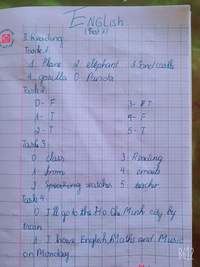 ENGLISH
(Test 1)
I. Reading
Task 1
1. Plane 2. elephant 3.
4. gorilla 0. Panda
Task 2
0 - F 3 - T
1 - T 4 - F
2 - T 5 - T
Task 3
0 class 3 Reading
1 from 4
2 watches 5 teacher
Task 4
0 I'll go to the Ho Chi Minh city by
train
1 I have English, Maths and Music
on Monday